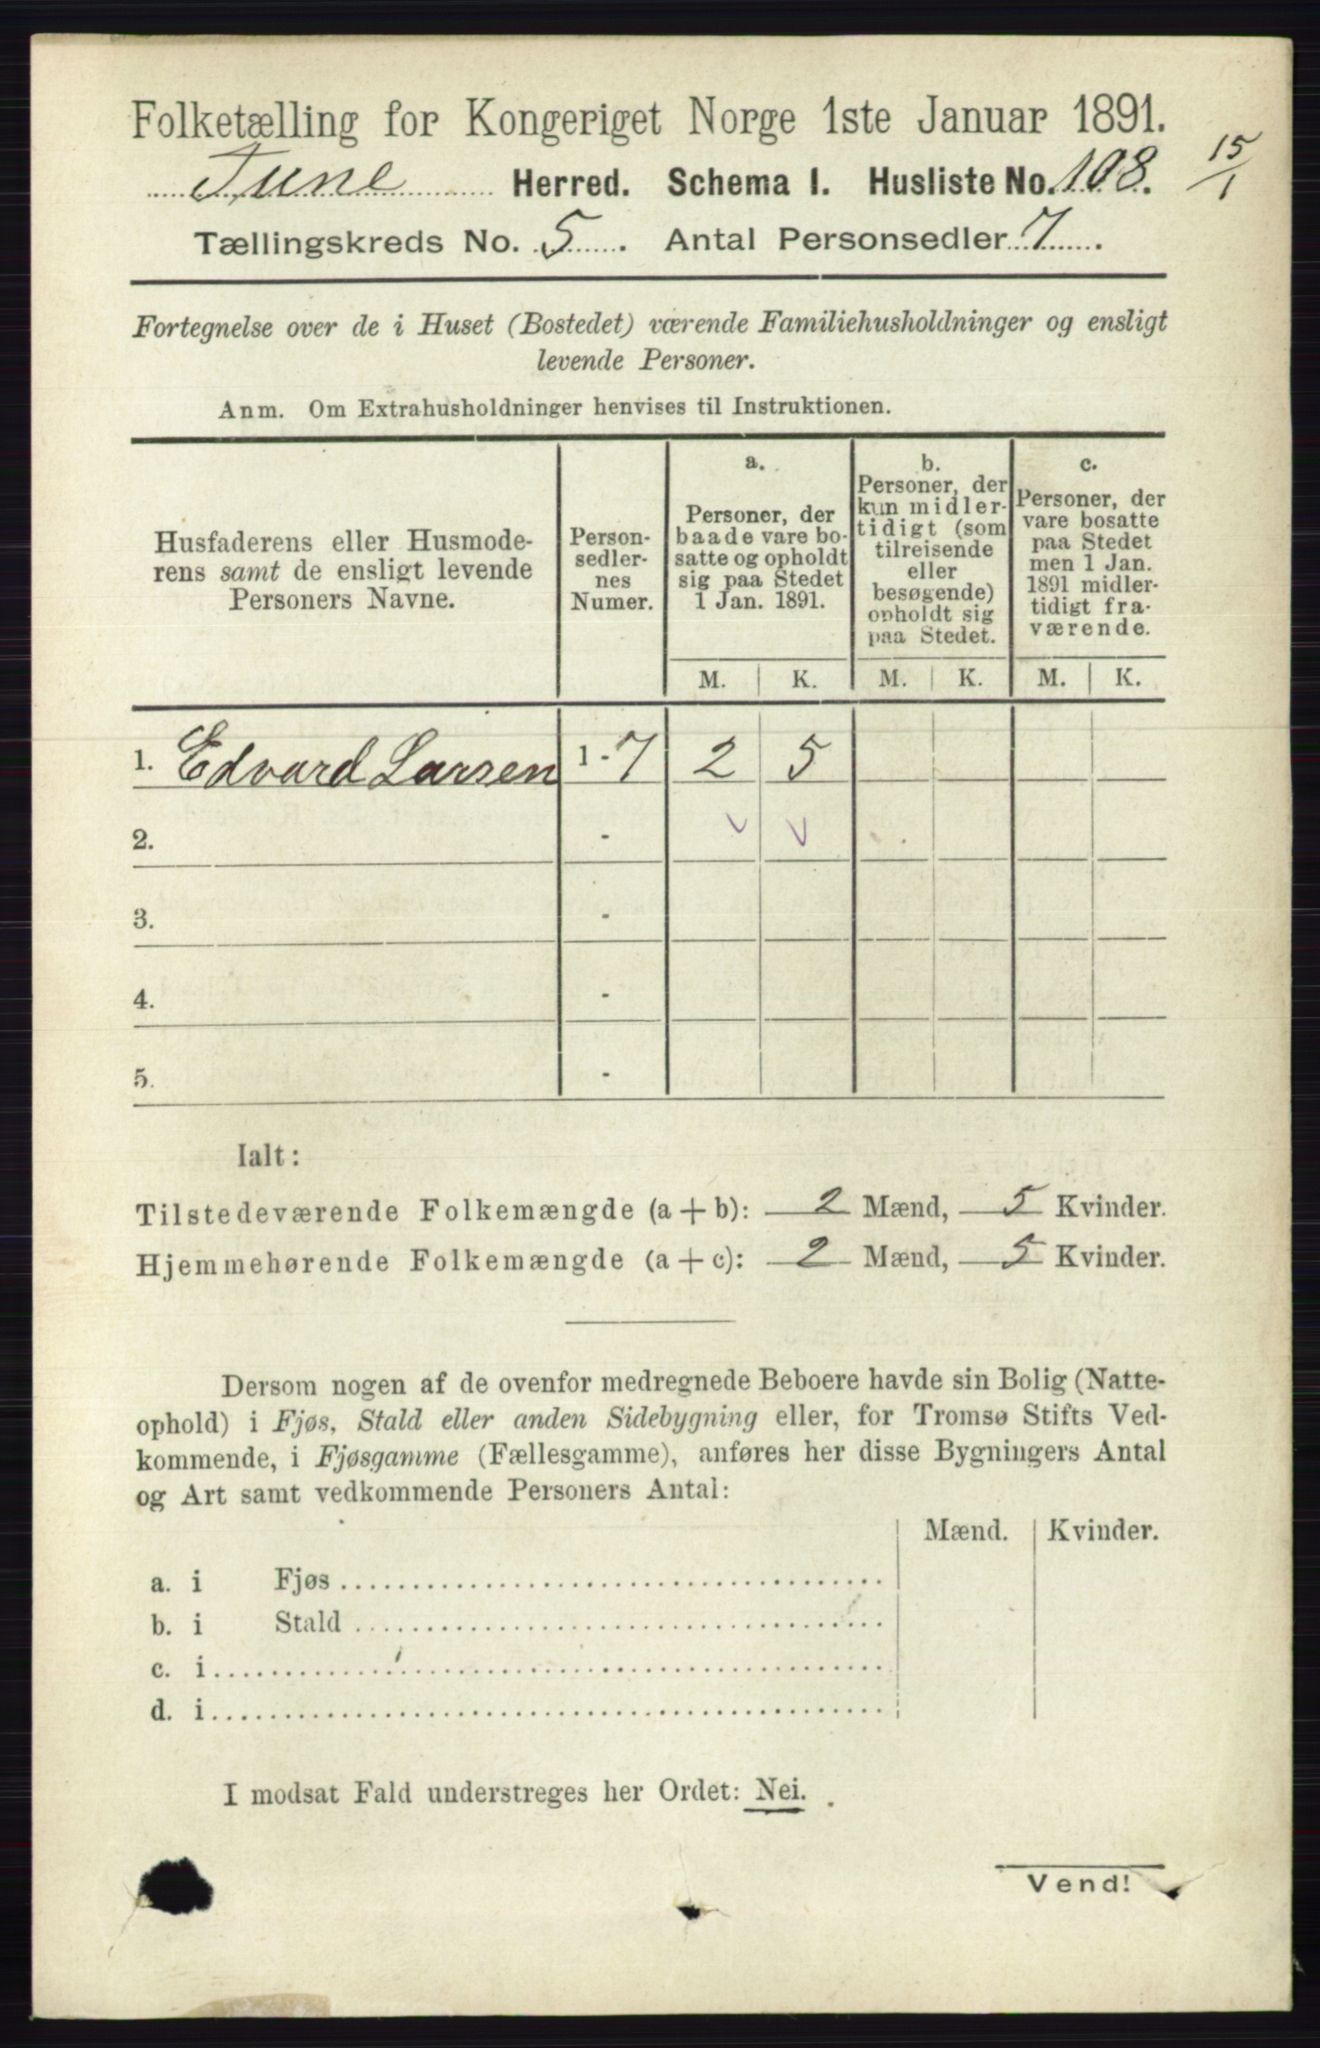 Folketælling for Kongeriget Norge 1ste Januar 1891.
Tune Herred. Schema I. Husliste No. 108.
15/1
Tællingskreds No. 5. Antal Personsedler 7.
Fortegnelse over de i Huset (Bostedet) værende Familiehusholdninger og ensligt
levende Personer.
Anm. Om Extrahusholdninger henvises til Instruktionen.
Husfaderens eller Husmode-
rens samt de ensligt levende
Personers Navne.
Person-
sedler-
nes
Numer.
a.
Personer, der
baade vare bo-
satte og opholdt
sig paa Stedet
1 Jan. 1891.
b.
Personer, der
kun midler-
tidigt (som
tilreisende
eller
besøgende)
opholdt sig
paa Stedet.
c.
Personer, der
vare bosatte
paa Stedet
men 1 Jan.
1891 midler-
tidigt fra-
værende.
M. K. M. K. M. K.
1. Edvard Larsen 1 - 7 2 5
2. -
3. -
4. -
5. -
Ialt:
Tilstedeværende Folkemængde (a + b): 2 Mænd, 5 Kvinder.
Hjemmehørende Folkemængde (a + c): 2 Mænd, 5 Kvinder.
Dersom nogen af de ovenfor medregnede Beboere havde sin Bolig (Natte-
ophold) i Fjøs, Stald eller anden Sidebygning eller, for Tromsø Stifts Ved-
kommende, i Fjøsgamme (Fællesgamme), anføres her disse Bygningers Antal
og Art samt vedkommende Personers Antal:
Mænd. Kvinder.
a. i Fjøs
b. i Stald
c. i
d. i
I modsat Fald understreges her Ordet: Nei.
Vend!